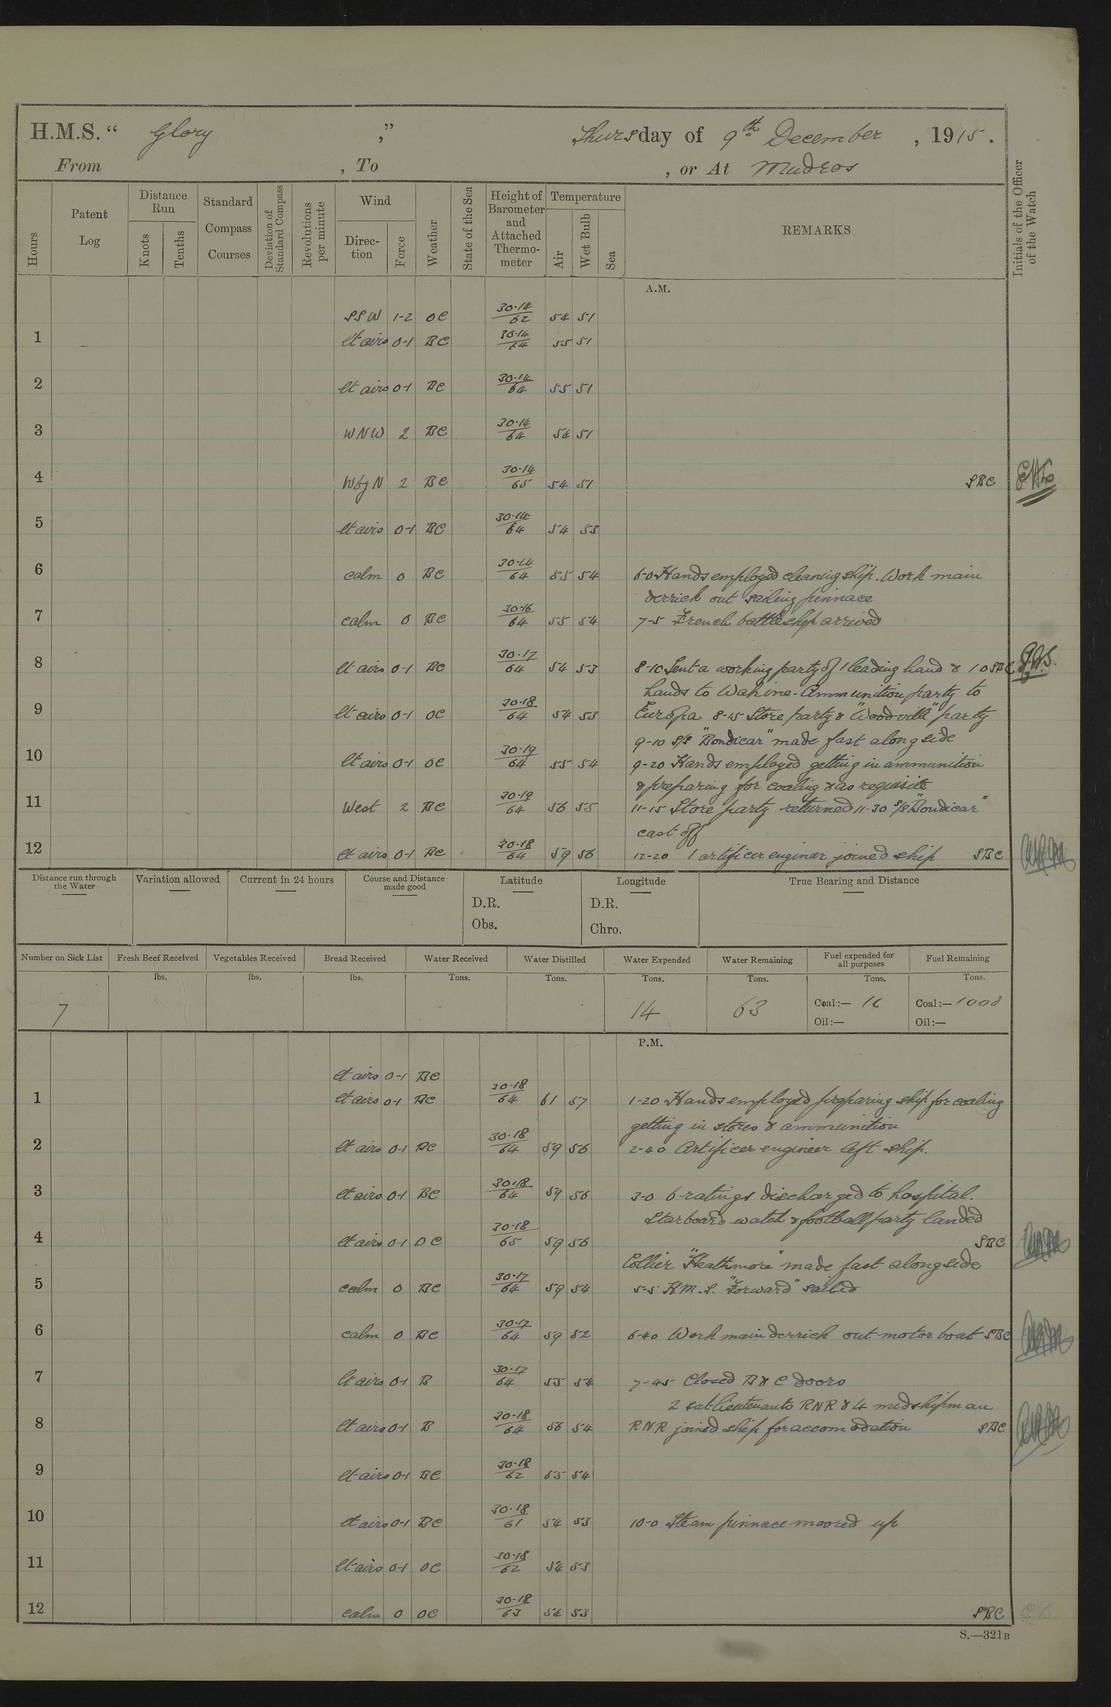 H.M.S. “ Glory ,” Thursday of 9th December , 1915.
From , To , or At Mudros
Hours
Patent Log
Distance Run
Knots
Tenths
Standard Compass Courses
Deviation of Standard Compass
Revolutions per minute
Wind
Direction
Force
Weather
State of the Sea
Height of Barometer and Attached Thermometer
Temperature
Air
Wet Bulb
Sea
REMARKS
Initials of the Officer of the Watch
A.M.
SSW 1-2 OC 30.14/62 54 51
1 lt airs 0-1 BC 30.14/64 55 51
2 lt airs 0-1 BC 30.14/64 55 51
3 WNW 2 BC 30.14/64 54 51
4 WbyN 2 BC 30.14/65 54 51 SBC
5 lt airs 0-1 BC 30.14/64 54 53
6 calm 0 BC 30.14/64 55 54 6-0 Hands employed cleaning ship. Work main
derrick out sailing pinnace
7 calm 0 BC 30.16/64 55 54 7-5 French battleship arrived
8 lt airs 0-1 BC 30.17/64 54 53 8-10 Sent a working party of 1 leading hand & 10 SBC
hands to Wahine - Ammunition party to
9 lt airs 0-1 OC 30.18/64 54 53 Europa. 8-15 Store party & "Woodville" party
9-10 S/S "Boudicar" made fast alongside
10 lt airs 0-1 OC 30.19/64 55 54 9-20 Hands employed getting in ammunition
& preparing for coaling & as requisite
11 West 2 BC 30.19/64 56 55 11-15 Store party returned 11-30 S/S "Boudicar"
cast off
12 lt airs 0-1 BC 30.18/64 59 56 12-20 1 artificer enginer joined ship SBC
Distance run through the Water
Variation allowed
Current in 24 hours
Course and Distance made good
Latitude
D.R.
Obs.
Longitude
D.R.
Chro.
True Bearing and Distance
Number on Sick List
Fresh Beef Received
Vegetables Received
Bread Received
Water Received
Water Distilled
Water Expended
Water Remaining
Fuel expended for all purposes
Fuel Remaining
lbs. lbs. lbs. Tons. Tons. Tons. Tons. Tons. Tons.
7 14 63 Coal:— 16 Coal:— 1008
Oil:— Oil:—
P.M.
lt airs 0-1 BC
1 lt airs 0-1 BC 30.18/64 61 57 1-20 Hands employed preparing ship for coaling
getting in stores & ammunition
2 lt airs 0-1 BC 30.18/64 59 56 2-40 Artificer engineer left ship.
3 lt airs 0-1 BC 30.18/64 59 56 3-0 6 ratings discharged to hospital.
Starboard watch & football party landed
4 lt airs 0-1 BC 30.18/65 59 56 SBC
Collier "Heathmore" made fast alongside
5 calm 0 BC 30.17/64 59 54 5-5 H.M.S. "Forward" sailed
6 calm 0 BC 30.17/64 59 52 6-40 Work main derrick out motor boat SBC
7 lt airs 0-1 B 30.17/64 55 54 7-45 Closed B & C doors
2 sub lieutenants RNR & 4 midshipman
8 lt airs 0-1 B 30.18/64 56 54 RNR joined ship for accomodation SBC
9 lt airs 0-1 BC 30.18/62 55 54
10 lt airs 0-1 BC 30.18/61 54 53 10-0 Steam pinnace moored up
11 lt airs 0-1 OC 30.18/62 54 53
12 calm 0 OC 30.18/63 54 53 SBC
S.—321B